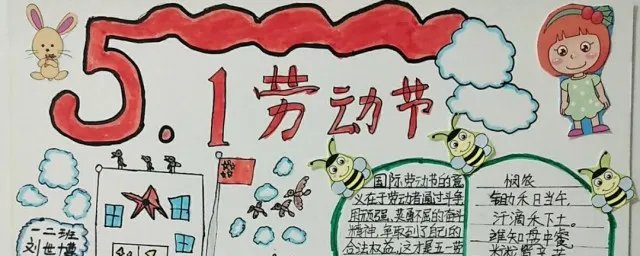 5.1 劳动节
一二班
刘世
国际劳动节的意
义在于劳动者通过斗争
用顽强、英勇不屈的奋斗
精神,争取到了自己的
合法权益,这才是五一劳
悯农
锄禾日当午,
汗滴禾下土。
谁知盘中餐,
粒粒皆辛苦